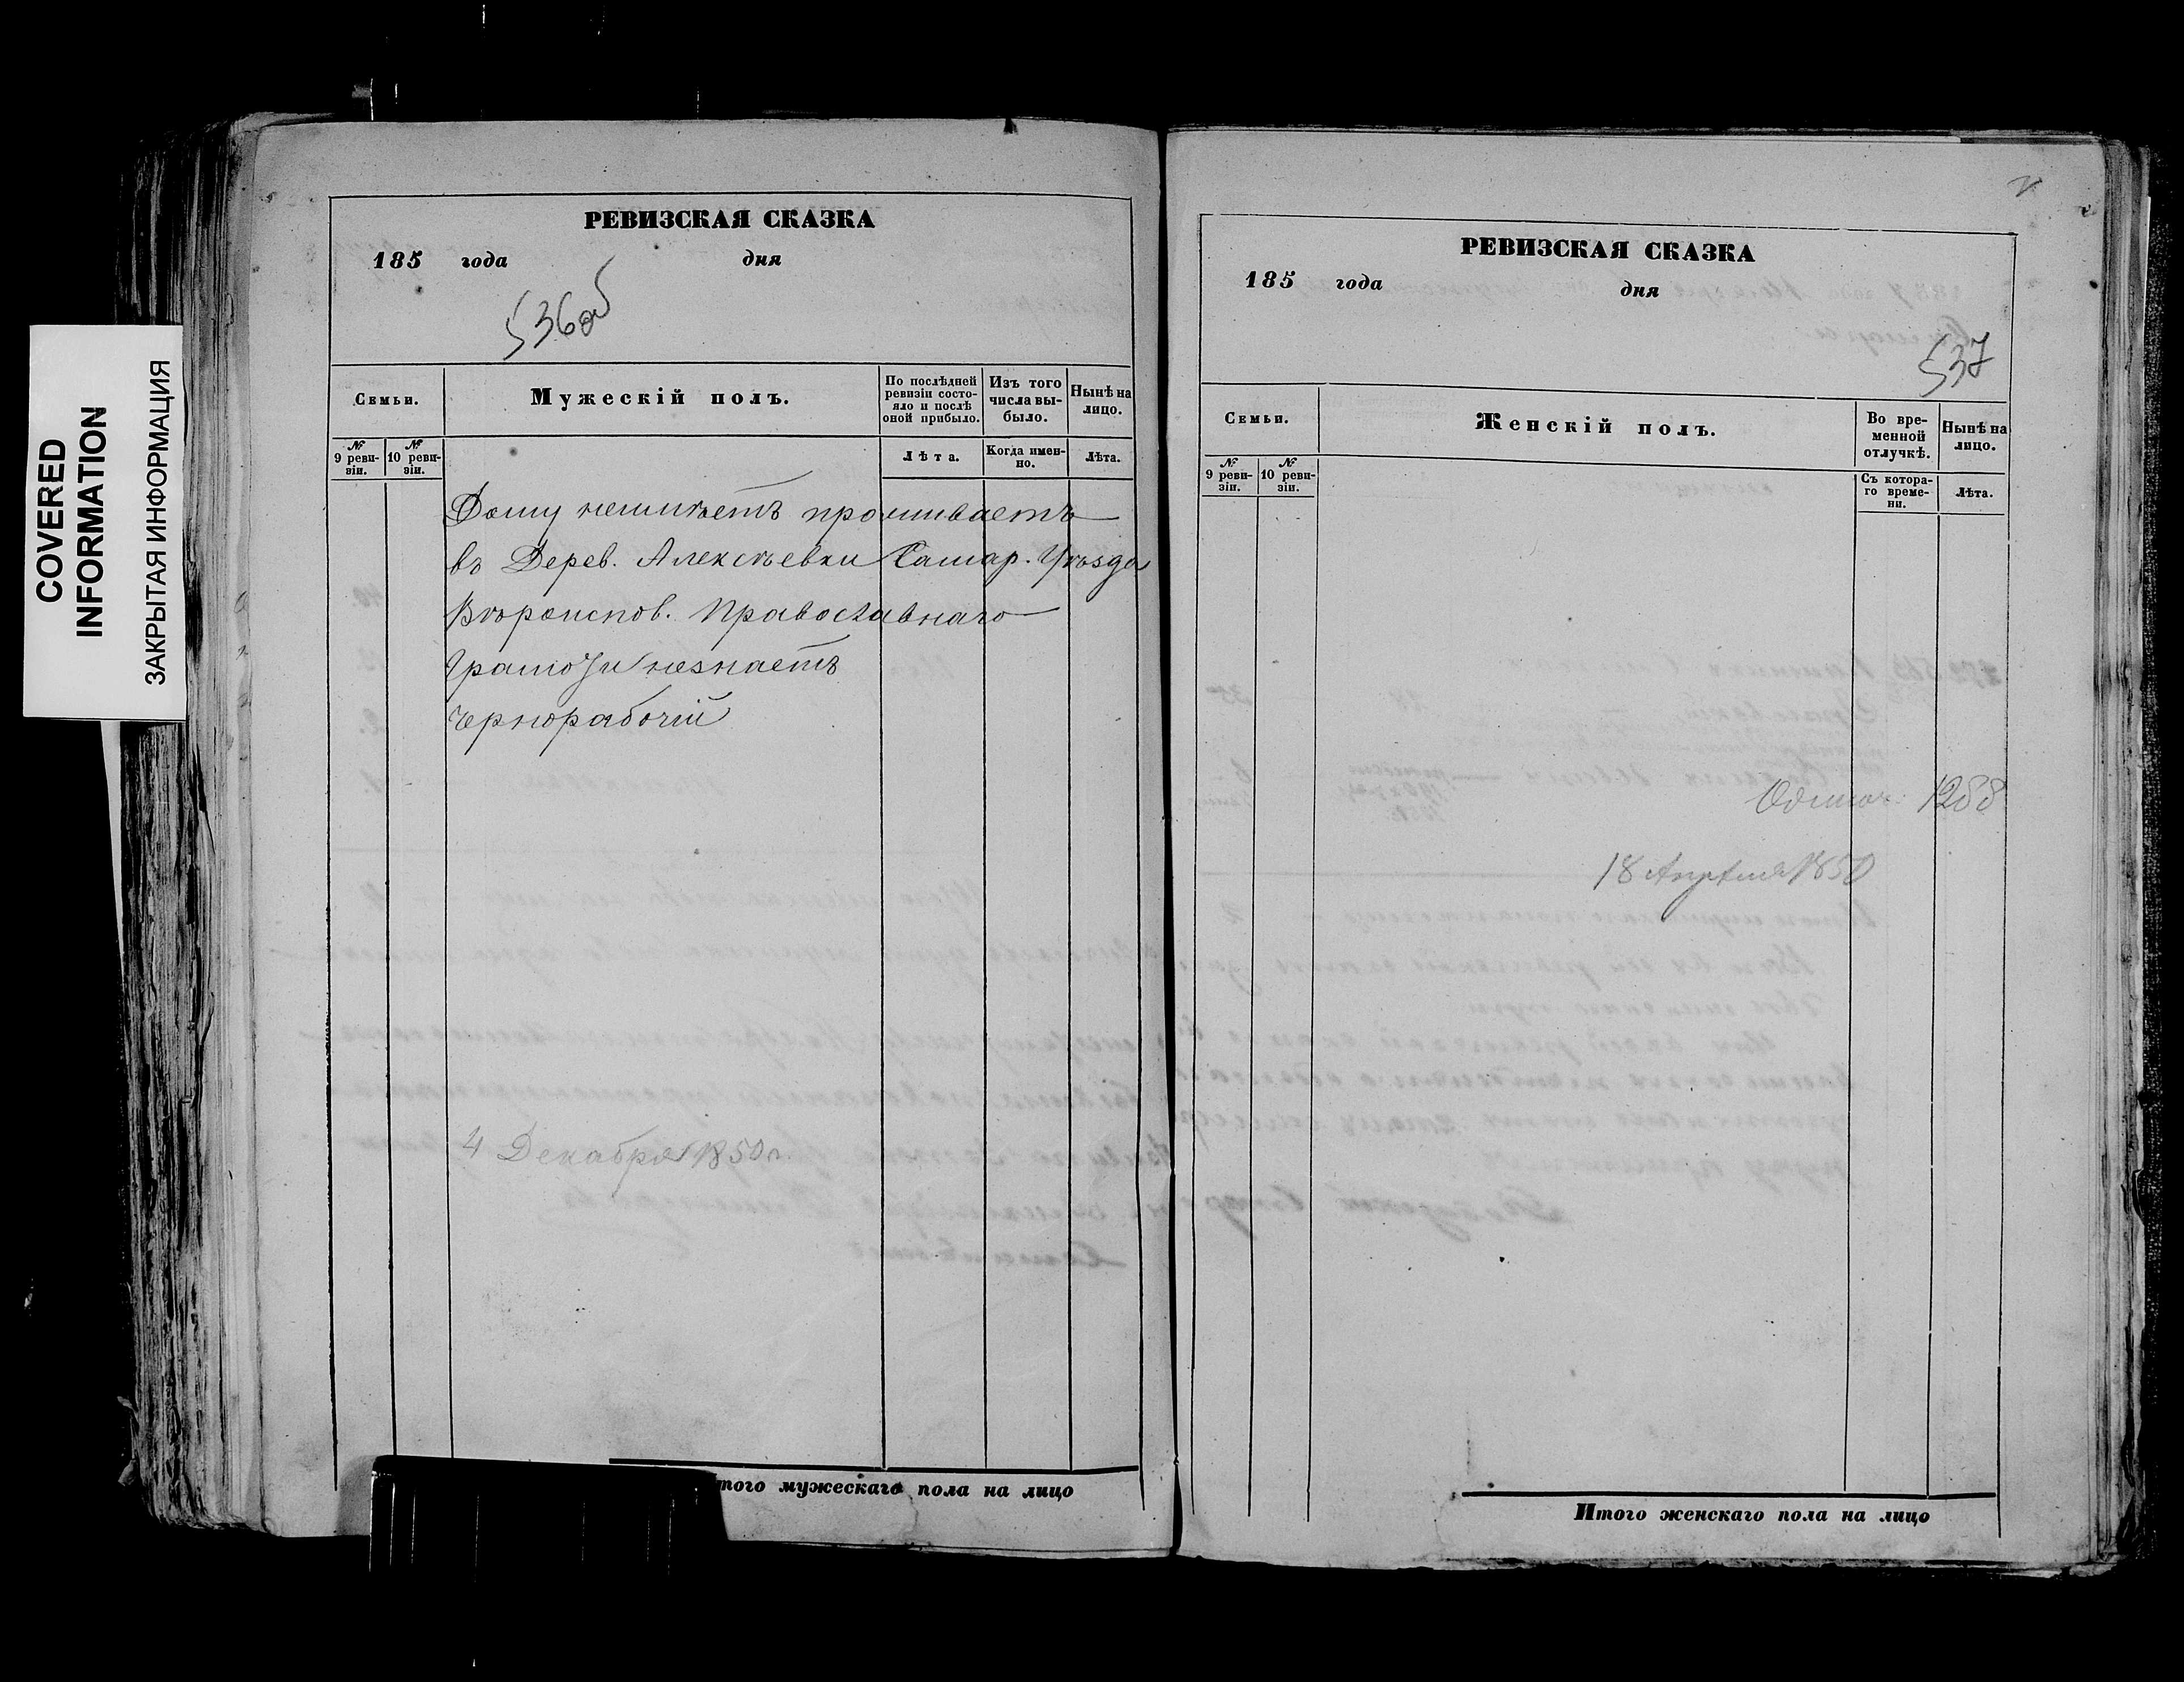 COVERED
INFORMATION
ЗАКРЫТАЯ ИНФОРМАЦИЯ
РЕВИЗСКАЯ СКАЗКА
185 года дня
536об
Семьи.
Мужескій полъ.
По послѣдней ревизіи состояло и послѣ оной прибыло.
Изъ того числа выбыло.
Нынѣ на лицо.
№ 9 ревизіи.
№ 10 ревизіи.
Лѣта.
Когда именно.
Лѣта.
Дому неимѣетъ проживаетъ
въ Дерев. Алексѣевки Самар. Уѣзда
Вѣроиспов. Православнаго
Грамоты незнаетъ
чернорабочій
4 Декабря 1850 г.
того мужескаго пола на лицо
РЕВИЗСКАЯ СКАЗКА
185 года дня
537
Семьи.
Женскій полъ.
Во временной отлучкѣ.
Нынѣ на лицо.
№ 9 ревизіи.
№ 10 ревизіи.
Съ котораго времени.
Лѣта.
1288
18 Апрѣля 1850
Итого женскаго пола на лицо